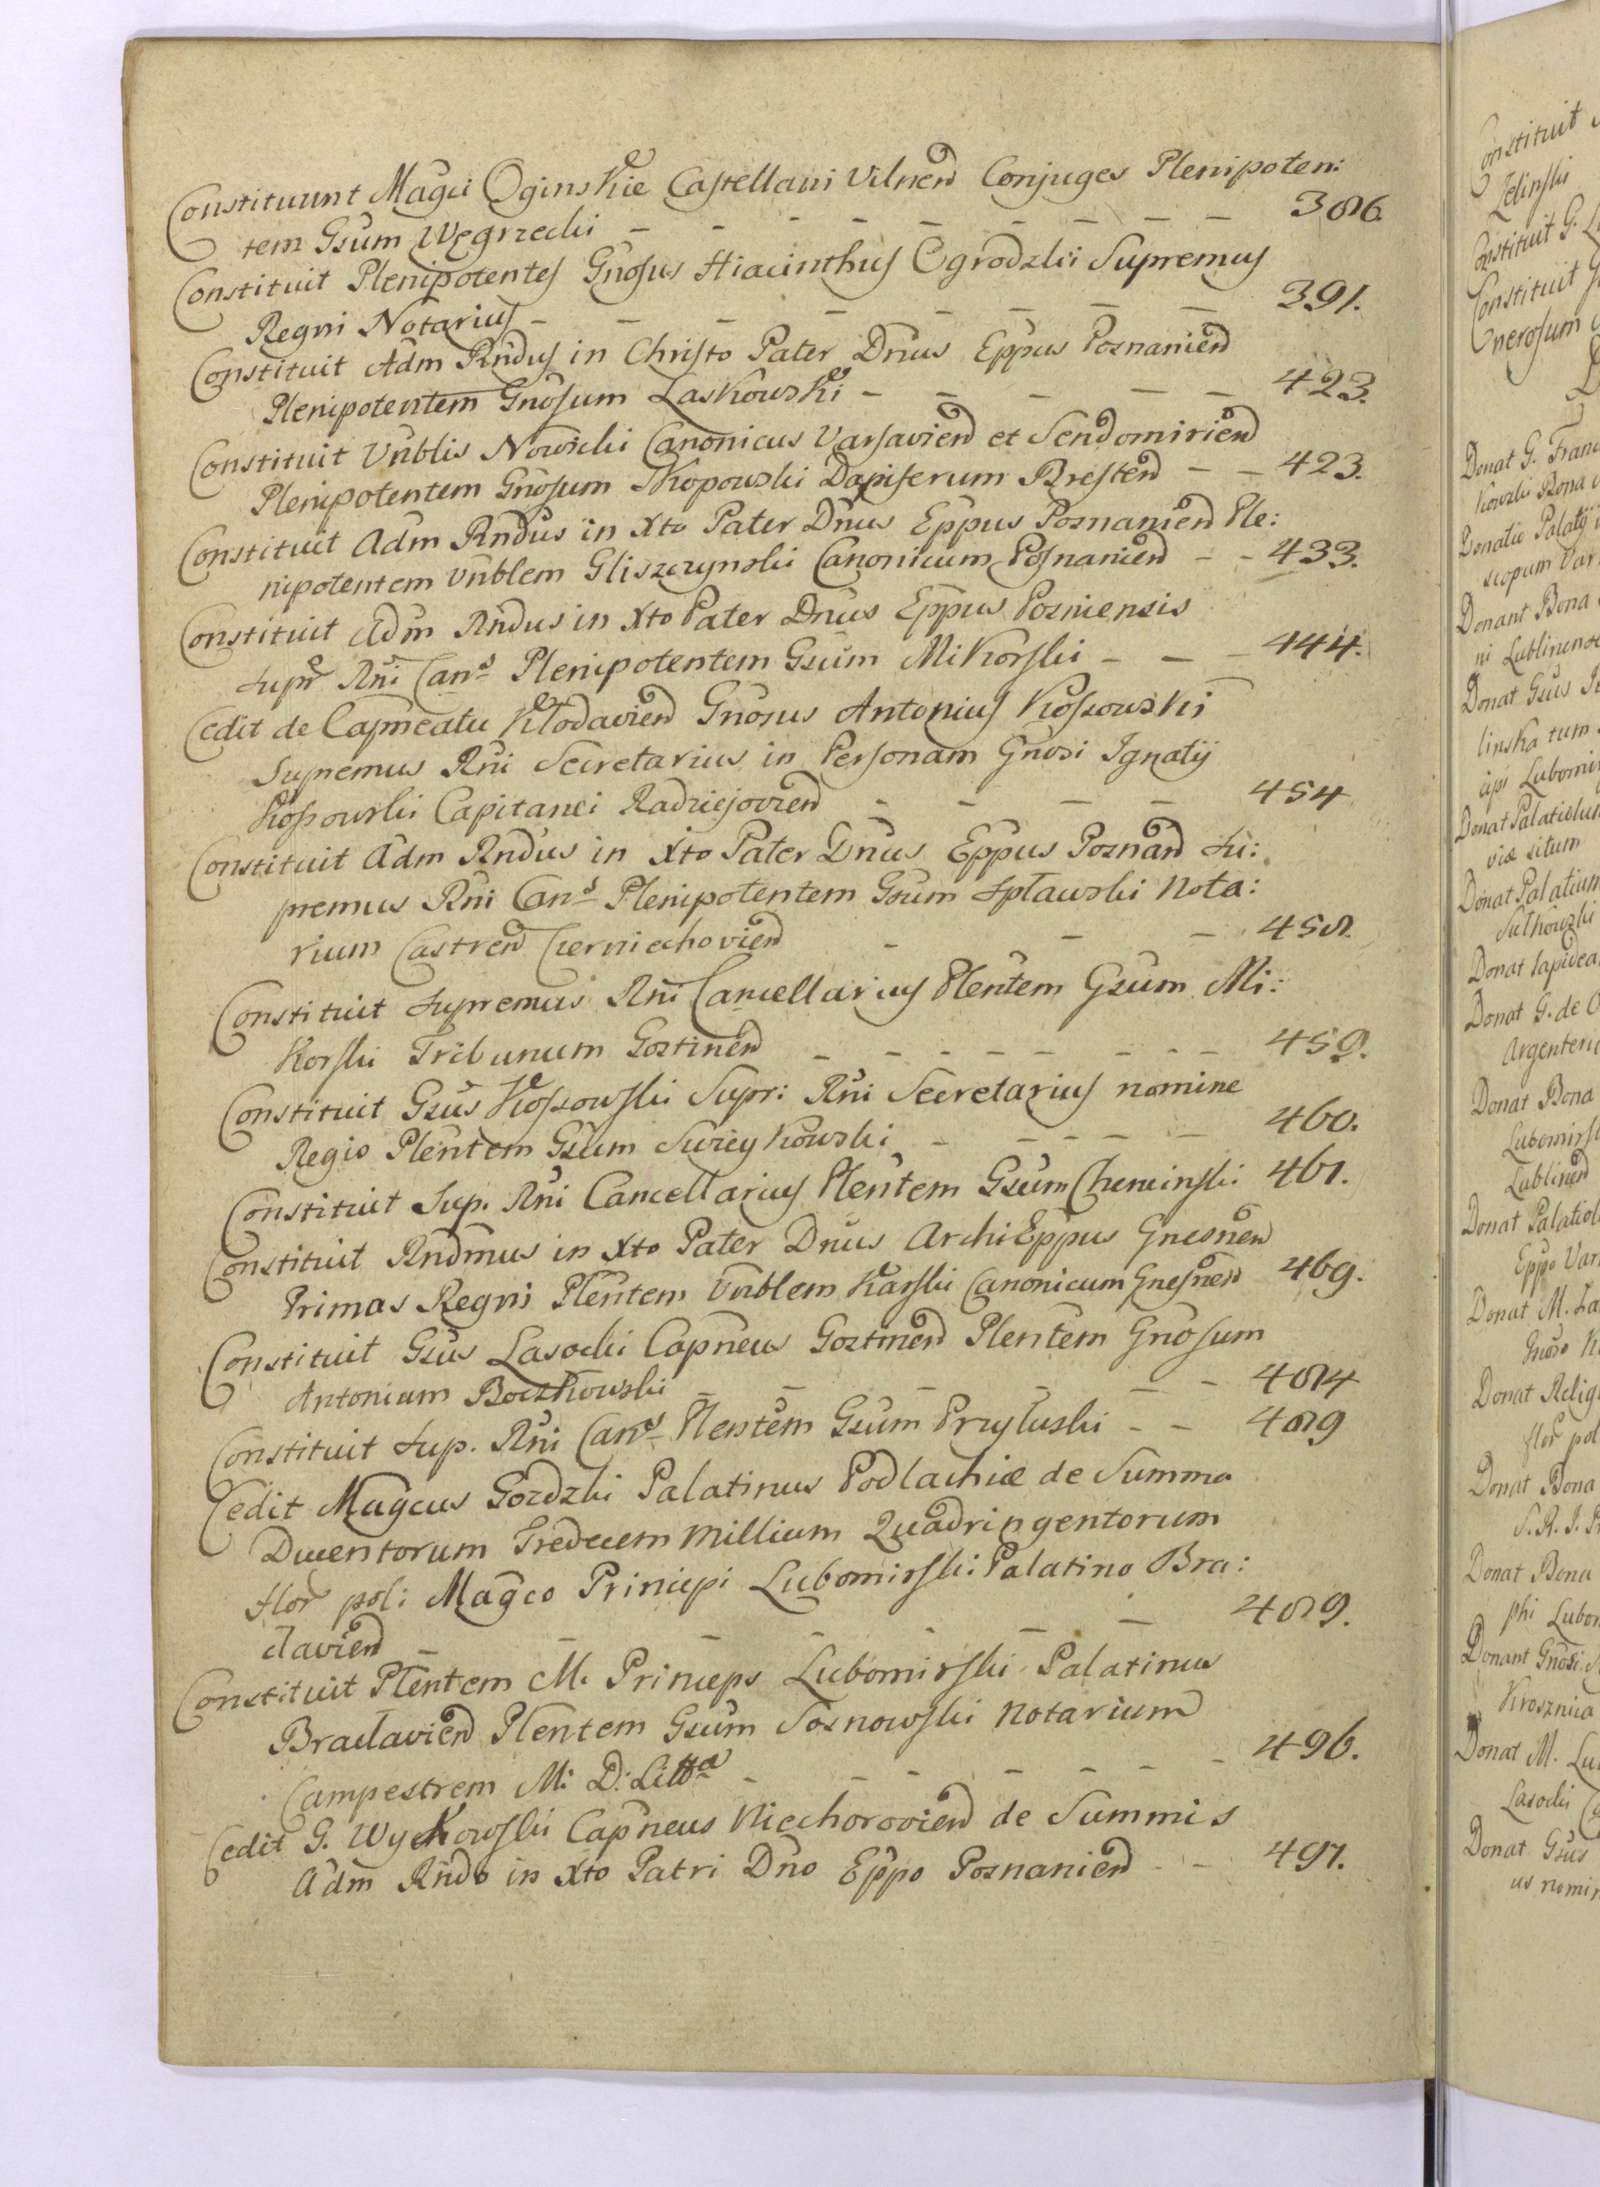 Constituunt Magci Oginskie Castellani Vilnen Conjuges Plenipoten:
tem Gsum Węgrzecki — — — — — — — — 386
Constituit Plenipotentes Gnosus Hiacinthus Ogrodzki Supremus
Regni Notarius — — — — — — — 391.
Constituit Adm Rndus in Christo Pater Dnus Eppus Posnanien
Plenipotentem Gnosum Laskowski — — — — 423.
Constituit Vnblis Nowicki Canonicus Varsavien et Sendomirien
Plenipotentem Gnosum Skopowski Dapiferum Bresten — — 423.
Constituit Adm Rndus in Xto Pater Dnus Eppus Posnanien Ple:
nipotentem Vnblem Gliszczynski Canonicum Posnanien — — 433.
Constituit Adm Rndus in Xto Pater Dnus Eppus Posniensis
Supr Rni Cans Plenipotentem Gsum Mikorski — — — 444.
Cedit de Capneatu Kłodavien Gnosus Antonius Kossowski
Supremus Rni Secretarius in Personam Gnosi Ignatij
Kossowski Capitanei Radziejovien — — — — 454
Constituit Adm Rndus in Xto Pater Dnus Eppus Posnan Su:
premus Rni Cans Plenipotentem Gsum Spławski Nota:
rium Castren Czerniechovien — — — 458.
Constituit Supremus Rni Cancellarius Plentem Gsum Mi:
korski Tribunum Gostinen — — — — — — — — 459.
Constituit Gsus Kossowski Supr: Rni Secretarius nomine
Regio Plentem Gsum Swieykowski — — — — — 460.
Constituit Sup. Rni Cancellarius Plentem Gsum Cheminski 461.
Constituit Rndmus in Xto Pater Dnus ArchiEppus Gnesnen
Primas Regni Plentem Vnblem Karski Canonicum Gnesnen 469.
Constituit Gsus Lasocki Capneus Gostinen Plentem Gnosum
Antonium Boczkowski — — — — — — 484
Constituit Sup. Rni Cans Plentem Gsum Przyłuski — — 489
Cedit Magcus Gozdzki Palatinus Podlachiæ de Summa
Ducentorum Tredecem Millium Quadringentorum
flor pol: Magco Principi Lubomirski Palatino Bra:
clavien — — — — — — — 489.
Constituit Plentem M. Princeps Lubomirski Palatinus
Braclavien Plentem Gsum Sosnowski Notarium
Campestrem M: D: Litta — — — — — — — 496.
Cedit G. Wyckowski Capneus Niechorovien de Summis
Adm Rndo in Xto Patri Dno Eppo Posnanien — — 497.
Constituit
Zelinski
Constituit G.
Constituit
nerosum
Donat G. Fran
kowski Bona
Donatio Palatij
scopum Var
Donant Bona
ni Lublinense
Donat Gsus
linska tum
Donat Palatiolum
viæ situm
Donat Palatium
Sułkowski
Donat
Donat G. de
Argenteri
Donat Bona
Lubomirsk
Lublinen
Donat Palatiol
Eppo Var
Donat M.
Gnoso
Donat Relig
flor pol
Donat Bona
S. R. I.
Donat Bona
phi Lubom
Donant Gnosi
Krosznica
Donat M. Lu
Lasocki
Donat Gsus
us nomin